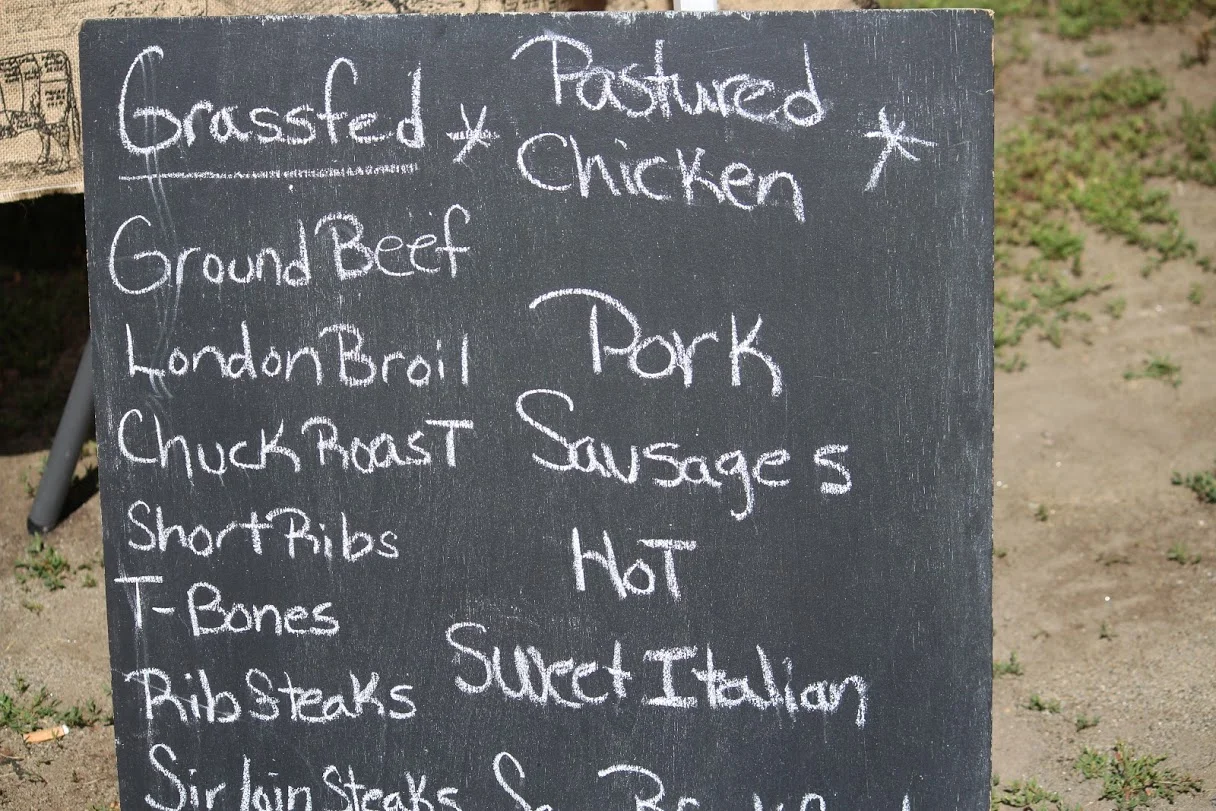 Grassfed
Ground Beef
London Broil
Chuck Roast
Short Ribs
T-Bones
Rib Steaks
Sirloin Steaks
* Pastured *
Chicken
Pork
Sausages
HoT
Sweet Italian